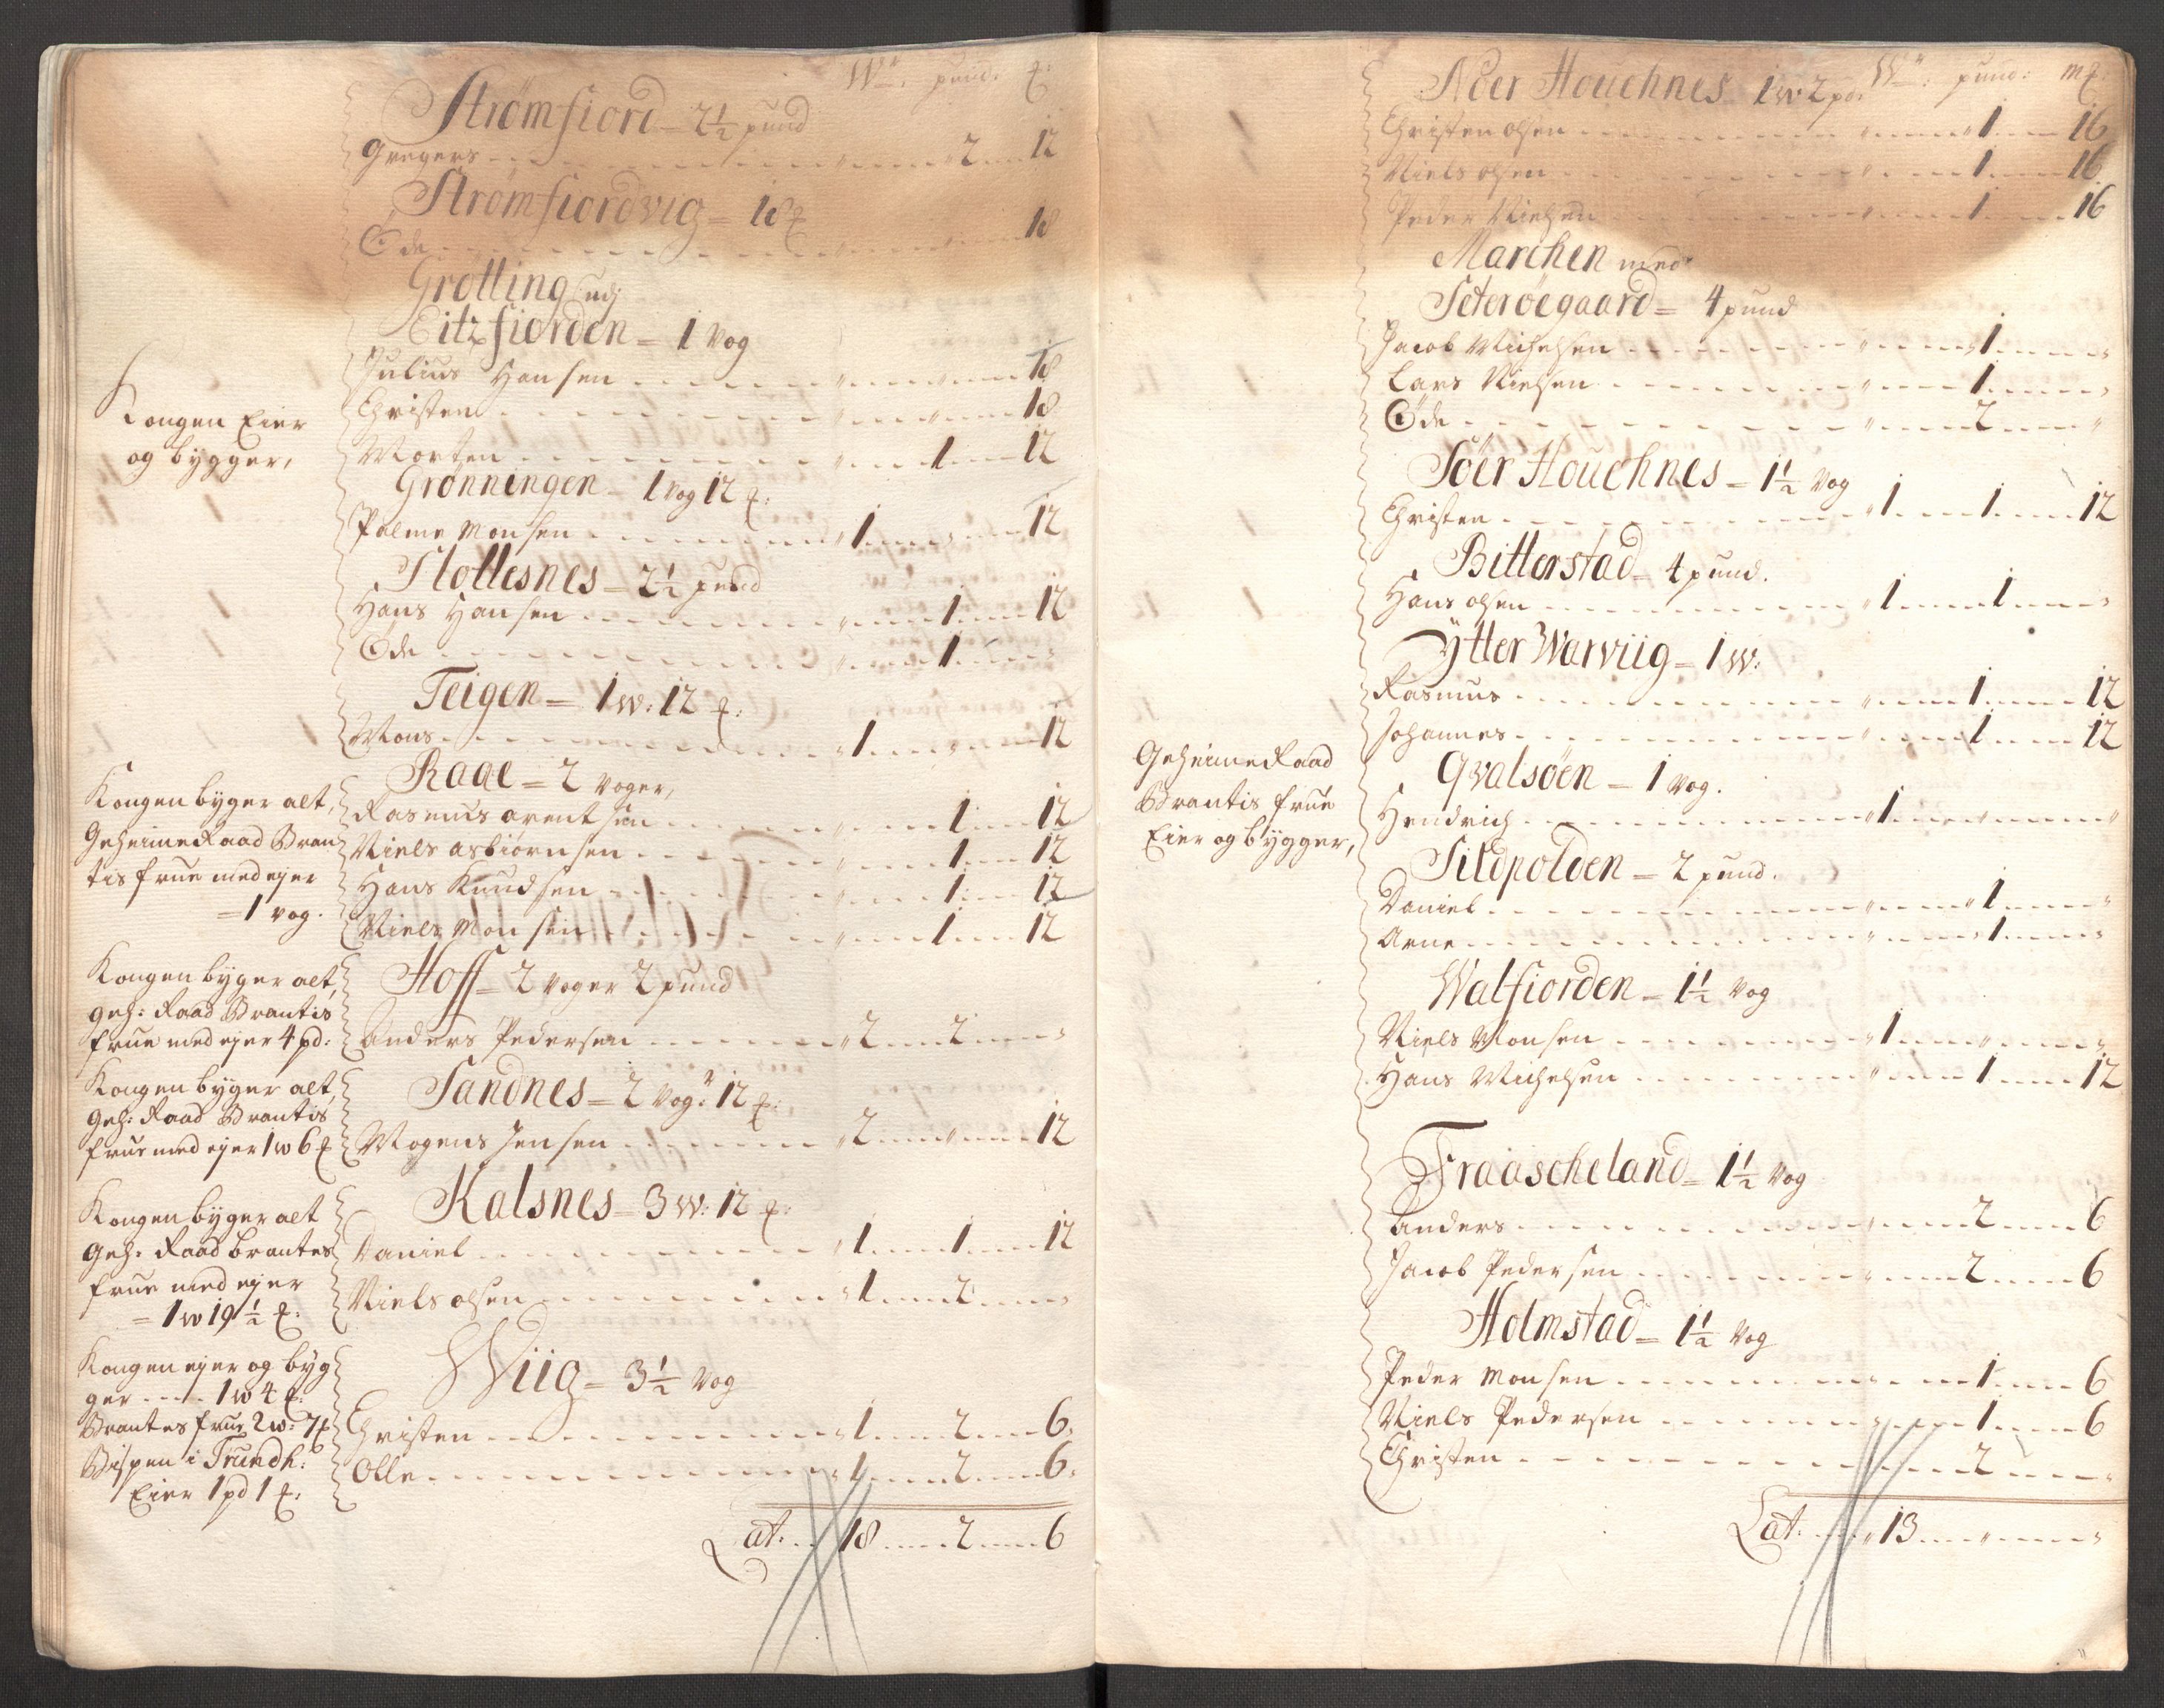 W: pund: ℔:
Strømfiord = 2½ pund
Gregers 2 12
Strømfiordvig = 18 ℔
Øde 18
Grøtting udj
Eitzfiorden = 1 Vog
Julius Hansen 18
Christen 18
Morten 1 12
Kongen Eier
og bygger,
Grønningen = 1 Vog 12 ℔:
Palme Monsen 1 12
Slottesnes = 2½ pund
Hans Hansen 1 12
Øde 1
Teigen = 1 w: 12 ℔:
Mons 1 12
Kongen byger alt,
Geheime Raad Bran
tis frue med ejer
= 1 vog.
Raae = 2 Voger,
Rasmus arentsen 1 12
Niels asbiørnsen 1 12
Hans Knudsen 1 12
Niels Monsen 1 12
Kongen byger alt,
Geh: Raad Brantis
frue med ejer 4 pd:
Hoff = 2 Voger 2 pund
Anders Pedersen 2 2
Kongen byger alt,
Geh: Raad Brantis
frue med ejer 1 w 6 ℔
Sandnes = 2 Vog: 12 ℔:
Mogens Jensen 2 12
Kongen byger alt
Geh: Raad Brantes
frue med ejer
= 1 w 19½ ℔:
Kalsnes = 3 w: 12 ℔:
Daniel 1 1 12
Niels olsen 1 2
Kongen ejer og byg
ger 1 w 4 ℔:
Brantes frue 2 w: 7 ℔
Bispen i Trundh:
Eier 1 pd 1 ℔:
Wiig = 3½ Vog
Christen 1 2 6
Olle 1 2 6
Lat: 18 2 6
Nöer Houchnes 1 w 2 pd: W: pund: m℔:
Christen olsen 1 16
Niels olsen 1 16
Peder Nielsen 1 16
Marchen med
Seterøegaard = 4 pund
Jacob Michelsen 1
Lars Nielsen 1
Øde 2
Söer Houchnes = 1½ Vog
Christen 1 1 12
Bitterstad = 4 pund.
Hans olsen 1 1
Ytter Warviig = 1 w:
Rasmus 1 12
Johannes 1 12
Geheime Raad
Brantis frue
Eier og bygger,
Qvalsöen = 1 Vog.
Hendrich 1
Sildpolden = 2 pund.
Daniel 1
Arne 1
Walfiorden = 1½ Vog
Niels Monsen 1
Hans Michelsen 1 12
Fraascheland = 1½ Vog
Anders 2 6
Jacob Pedersen 2 6
Holmstad = 1½ Vog
Peder Monsen 1 6
Niels Pedersen 1 6
Christen 2
Lat: 13